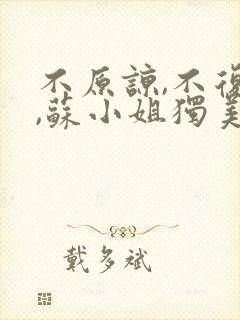 不原諒,不復
,蘇小姐獨美
戴多斌